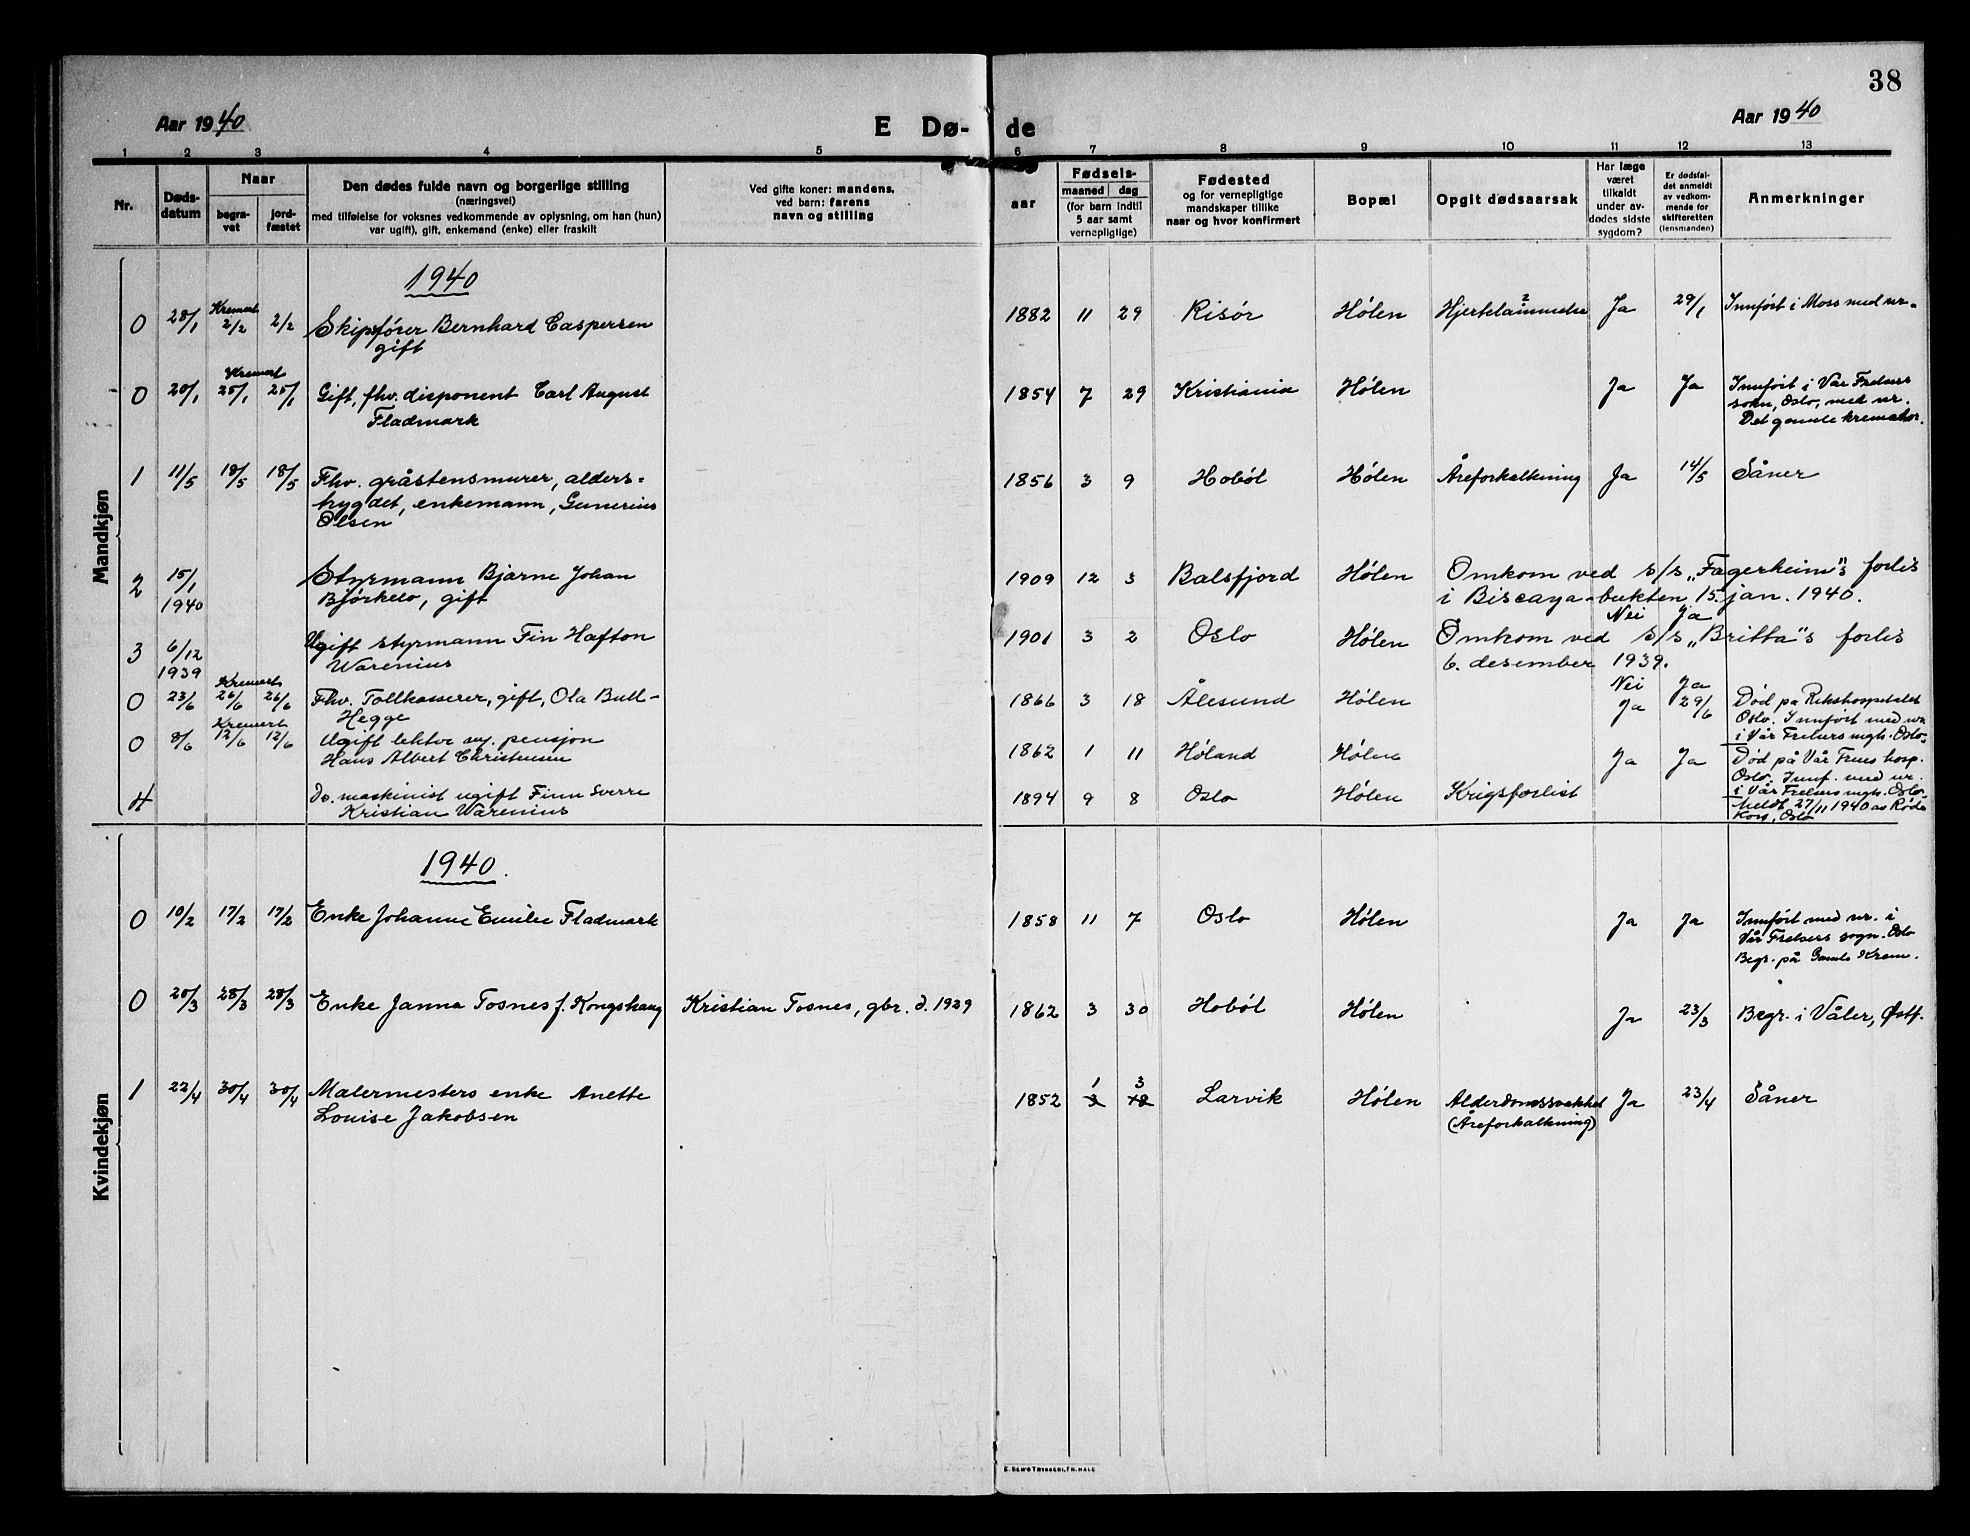 38
Aar 1940
E Dø-
de
Aar 1940
1 2 3 4 5 6 7 8 9 10 11 12 13
Nr.
Døds-
datum
Naar
begra-
vet
jord-
fæstet
Den dødes fulde navn og borgerlige stilling
(næringsvei)
med tilføielse for voksnes vedkommende av oplysning, om han (hun)
var ugift), gift, enkemand (enke) eller fraskilt
Ved gifte koner: mandens,
ved barn: farens
navn og stilling
Fødsels-
aar
maaned dag
(for barn indtil
5 aar samt
vernepligtige)
Fødested
og for vernepligtige
mandskaper tillike
naar og hvor konfirmert
Bopæl
Opgit dødsaarsak
Har læge
været
tilkaldt
under av-
dødes sidste
sygdom?
Er dødsfal-
det anmeldt
av vedkom-
mende for
skifteretten
(lensmanden)
Anmerkninger
Mandkjøn
1940
Kremert
0 28/1 2/2 2/2 Skipsfører Bernhard Caspersen
gift
1882 11 29 Risør Hølen Hjertelammelse ? Ja 29/1 Innført i Moss med nr.
Kremert
0 20/1 25/1 25/1 Gift, fhv. disponent Carl August
Fladmark
1854 7 29 Kristiania Hølen Ja Ja Innført i Vår Frelsers
sokn, Oslo, med nr.
Det gamle kremator.
1 11/5 18/5 18/5 Fhv. gråstensmurer, alders-
trygdet, enkemann, Gunerius
Olsen
1856 3 9 Hobøl Hølen Åreforkalkning Ja 14/5 Såner
2 15/1
1940
Styrmann Bjarne Johan
Bjørkelo, gift
1909 12 3 Balsfjord Hølen Omkom ved s/s „Fagerheim"s forlis
i Biscaya-bukten 15. jan. 1940.
Nei Ja
3 6/12
1939
Ugift styrmann Fin Hafton
Warenius
1901 3 2 Oslo Hølen Omkom ved s/s „Britta"s forlis
6. desember 1939.
Nei Ja
Kremert
0 23/6 26/6 26/6 Fhv. Tollkasserer, gift, Ola Bull-
Hegge
1866 3 18 Ålesund Hølen Ja 29/6 Død på Rikshospitalet
Oslo. Innført med nr.
i Vår Frelsers mgh. Oslo.
Kremert
0 8/6 12/6 12/6 Ugift lektor m/ pensjon
Hans Albert Christensen
1862 1 11 Høland Hølen Ja Ja Død på Vår Frues hosp.
Oslo. Innf. med nr.
i Vår Frelsers mgh. Oslo.
4 Do. maskinist ugift Finn Sverre
Kristian Warenius
1894 9 8 Oslo Hølen Krigsforlist Meldt 27/11 1940 av Røde
Kors, Oslo
Kvindekjøn
1940.
0 10/2 17/2 17/2 Enke Johanne Emilie Fladmark
1858 11 7 Oslo Hølen Ja Ja Innført med nr. i
Vår Frelsers sogn. Oslo
Begr. på Gamle Krem.
0 20/3 28/3 28/3 Enke Janna Tosnes f. Kongshaug Kristian Tosnes, gbr. d. 1929
1862 3 30 Hobøl Hølen Ja 23/3 Begr. i Våler, Østf.
1 22/4 30/4 30/4 Malermesters enke Anette
Louise Jakobsen
1 3
1852 3 18 Larvik Hølen Alderdomssvakhet Ja 23/4 Såner
(Åreforkalkning)